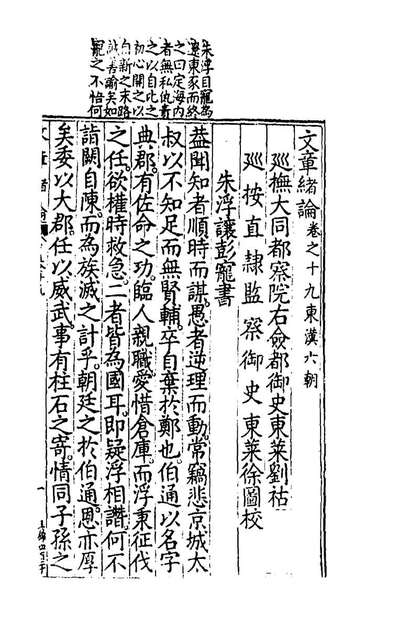 朱浮目寵為
遼東豕而終
之曰定海内
者無私仇責
之以自此之
初心開之以
自新之末路
誠善諭矣如
寵之不悟何
文章緒論卷之十九東漢六朝
廵撫大同都察院右僉都御史東萊劉祜
廵按直隸監察御史東萊徐圖校
朱浮讓彭寵書
葢聞知者順時而謀愚者逆理而動常竊悲京城太
叔以不知足而無賢輔卒自葉於鄭也伯通以名字
典郡有佐命之功臨人親職愛惜倉庫而浮秉征伐
之任欲權時救急二者皆為國耳即疑浮相譖何不
詣闕自陳而為族滅之計乎朝廷之於伯通恩亦厚
矣委以大郡任以威武事有柱石之寄情同子孫之